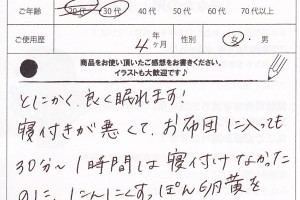 ご年齢 20代 30代 40代 50代 60代 70代以上
ご使用歴 4年 ヶ月 性別 女・男
商品をお使い頂いたご感想をお書きください。
イラストも大歓迎です♪
とにかく、良く眠れます!
寝付きが悪くて、お布団に入っても
30分~1時間は寝付けなかった
のに、にんにくすっぽん卵黄を